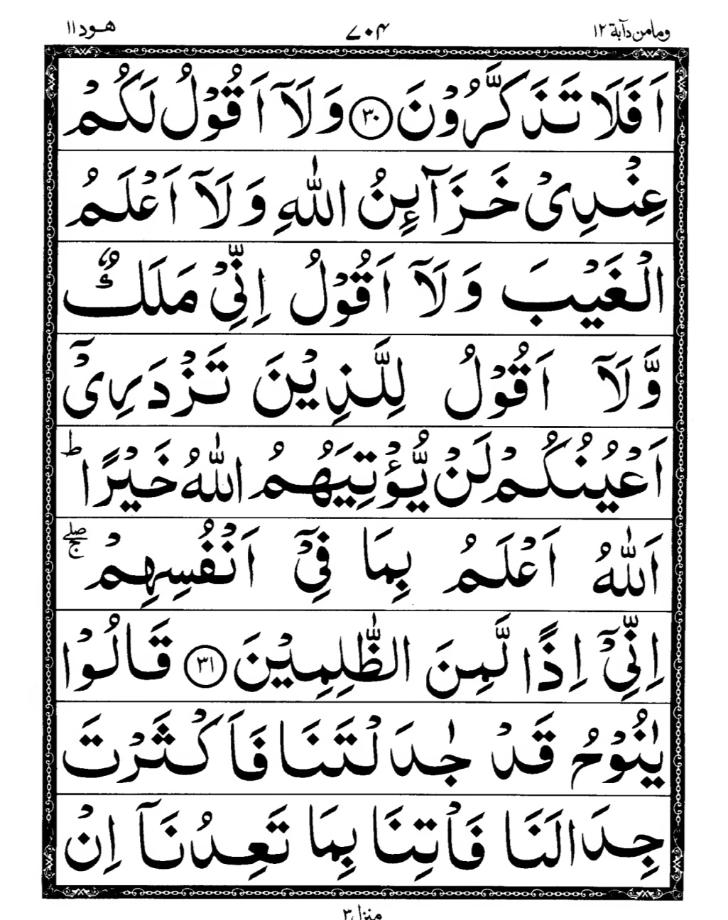 وما من دآبة ١٢ ٧٠٤ هود ١١
اَفَلَا تَذَكَّرُوْنَ ﴿٣٠﴾ وَلَاۤ اَقُوْلُ لَكُمْ
عِنْدِىْ خَزَآىِٕنُ اللّٰهِ وَلَاۤ اَعْلَمُ
الْغَيْبَ وَلَاۤ اَقُوْلُ اِنِّىْ مَلَكٌ
وَّلَاۤ اَقُوْلُ لِلَّذِيْنَ تَزْدَرِىْۤ
اَعْيُنُكُمْ لَنْ يُّؤْتِيَهُمُ اللّٰهُ خَيْرًا ؕ
اَللّٰهُ اَعْلَمُ بِمَا فِىْۤ اَنْفُسِهِمْ ۖۚ
اِنِّىْۤ اِذًا لَّمِنَ الظّٰلِمِيْنَ ﴿٣١﴾ قَالُوْا
يٰنُوْحُ قَدْ جٰدَلْتَنَا فَاَكْثَرْتَ
جِدَالَنَا فَاْتِنَا بِمَا تَعِدُنَاۤ اِنْ
منزل ٣